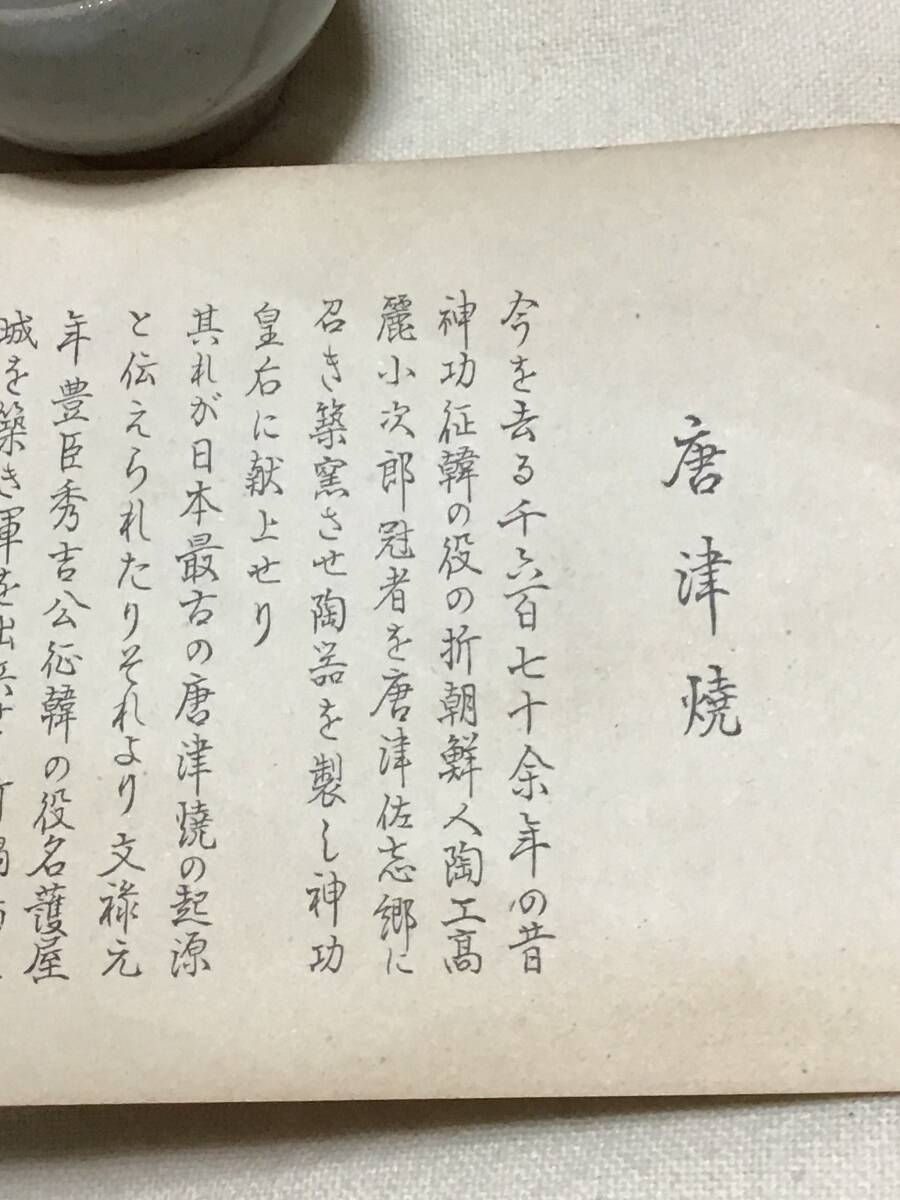 唐津燒
今を去る千六百七十余年の昔
神功征韓の役の折朝鮮人陶工高
麗小次郎冠者を唐津佐志郷に
召き築窯させ陶器を製し神功
皇后に献上せり
其れが日本最古の唐津燒の起源
と伝えられたりそれより文祿元
年豊臣秀吉公征韓の役名護屋
城を築き軍を出兵